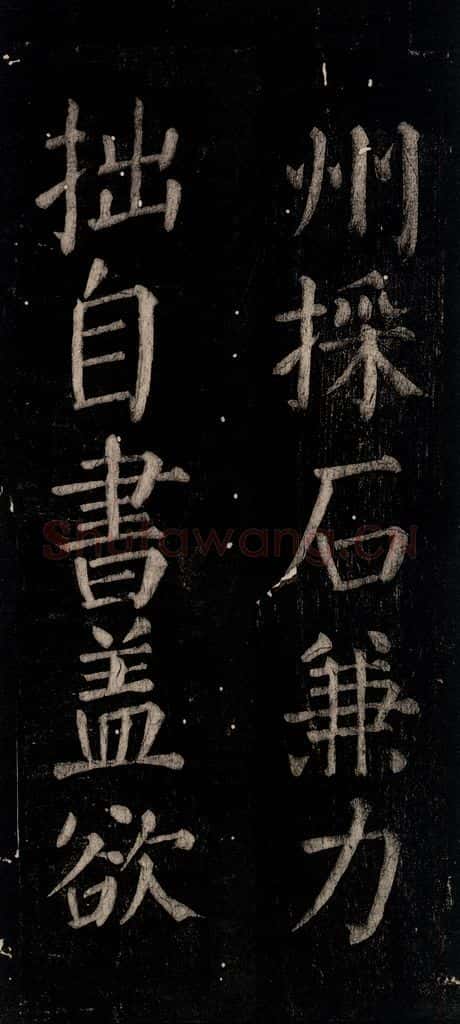 州採石兼力
拙自書盖欲
Shufawang.cn